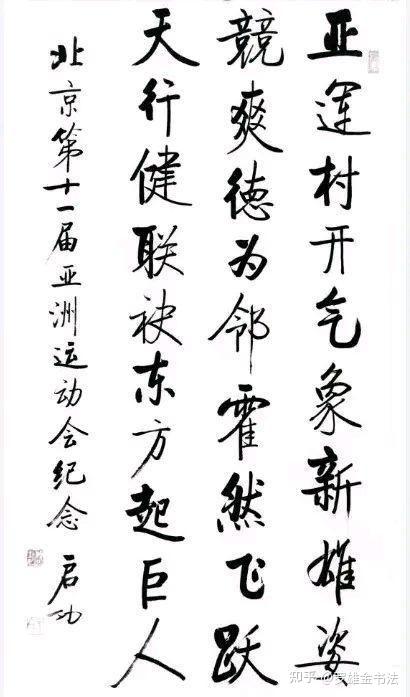 亚运村开气象新雄姿
競爽德为邻霍然飞跃
天行健联袂东方起巨人
北京第十一届亚洲运动会纪念 启功
知乎 @罗雄金书法